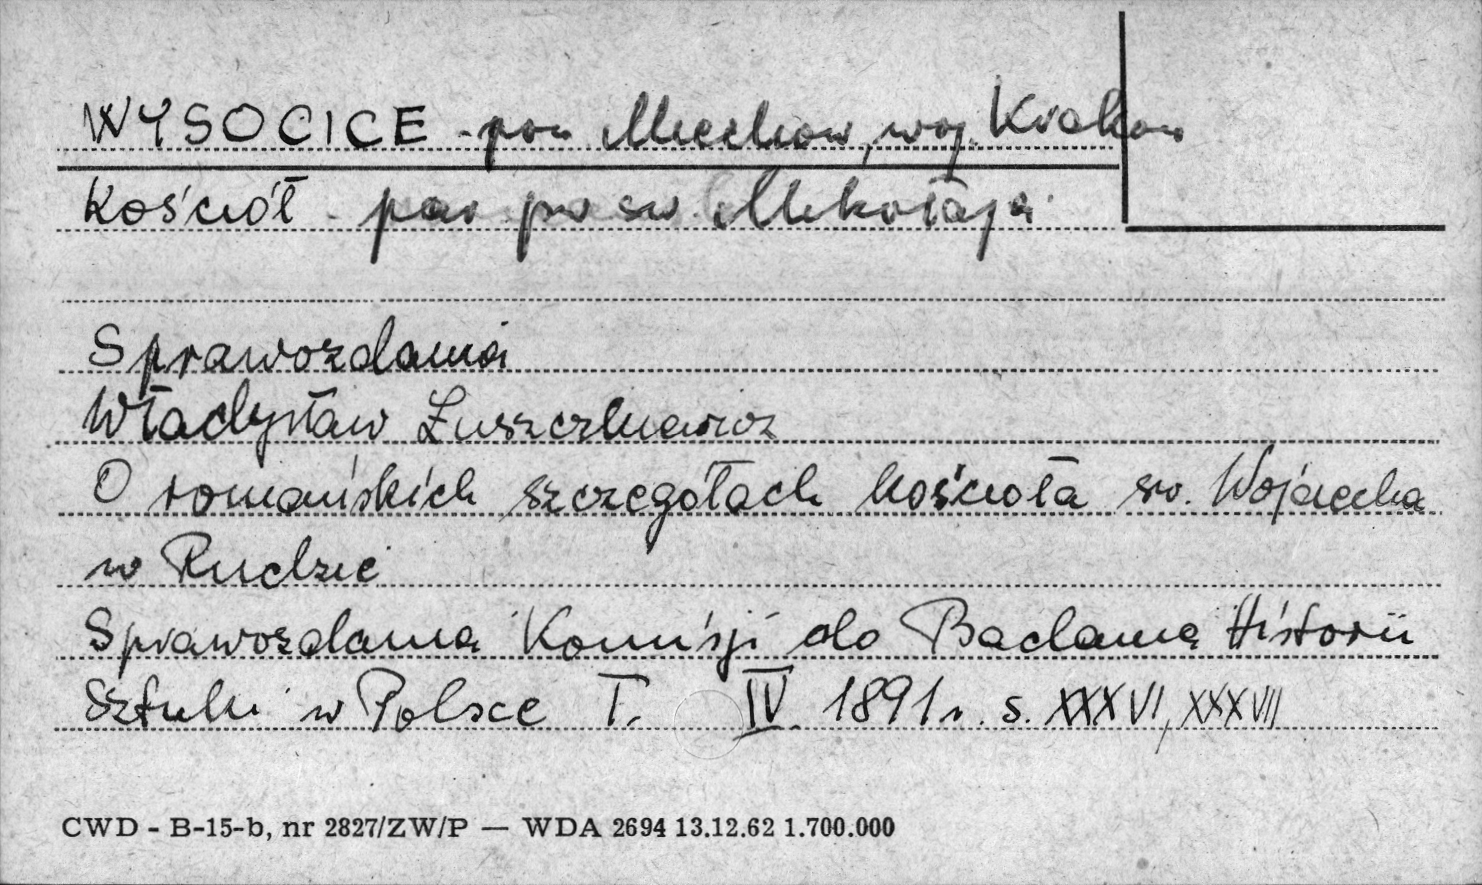 WYSOCICE - pow Miechów, woj. Kraków
Kościół - par pw św. Mikołaja
Sprawozdania
Władysław Łuszczkiewicz
O romańskich szczegółach kościoła św. Wojciecha
w Rudzie
Sprawozdania Komisji do Badania Historii
Sztuki w Polsce T. IV. 1891 r. s. XXXVI, XXXVII
CWD - B-15-b, nr 2827/ZW/P — WDA 2694 13.12.62 1.700.000